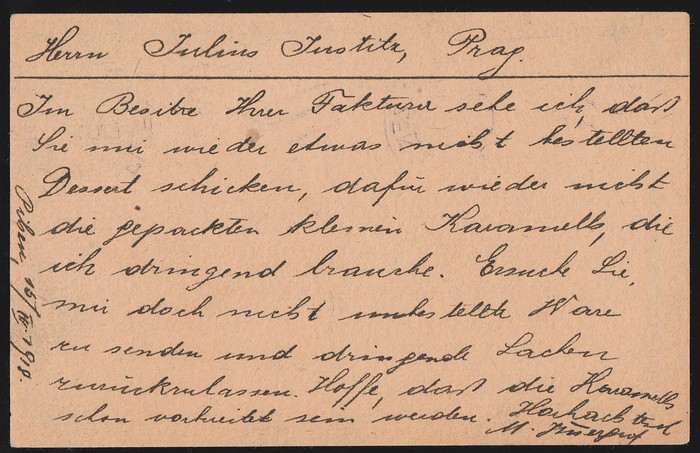 Herrn Julius Justitz, Prag.
Im Besitze Ihrer Faktura sehe ich, daß
Sie mir wieder etwas nicht bestellten
Dessert schicken, dafür wieder nicht
die gepackten kleinen Karamells, die
ich dringend brauche. Ersuche Sie,
mir doch nicht unbestellte Ware
zu senden und dringende Sachen
zurückzulassen. Hoffe, daß die Karamells
schon vorbereitet sein werden. Hochachtend
M.
15/IV. 1918.